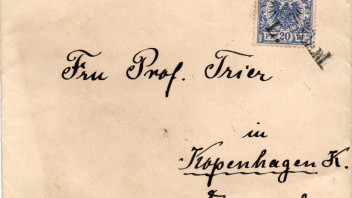 20
Fru Prof. Trier
in
Kopenhagen K.